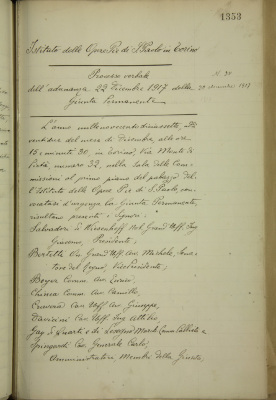 1353
Istituto delle Opere Pie di S. Paolo in Torino
Processo verbale N. 30
dell'adunanza 22 Dicembre 1917 della
Giunta Permanente
L'anno millenovecentodiciassette, addì
ventidue del mese di Dicembre alle ore
15 e minuti 30, in Torino, Via Monte di
Pietà, numero 32, nella sala delle Com-
missioni al primo piano del palazzo del-
l'Istituto delle Opere Pie di S. Paolo, con-
vocatasi d'urgenza la Giunta Permanente,
risultano presenti i Signori:
Salvadori di Wiesenhoff Nob. Grand'Uff. Ing.
Giacomo, Presidente;
Bertetti Cav. Grand'Uff. Avv. Michele, Sena-
tore del Regno, Vicepresidente;
Comm. Avv.
Chiesa Comm. Avv. Camillo,
Cav. Uff. Avv. Giuseppe,
Cav. Uff. Ing. Attilio,
Comm.
Cav. Generale Carlo,
Amministratori Membri della Giunta.